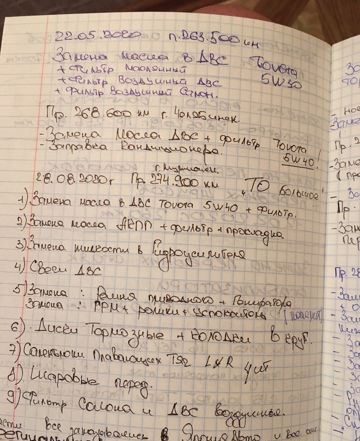 22.05.2020 п.263.500 км
Замена масла в ДВС Toyota
+ Фильтр масленный 5W30
+ Фильтр воздушный ДВС
+ Фильтр воздушный салон.
Пр. 268.600 км г. Челябинск
- Замена Масла ДВС + фильтр Toyota
- Заправка Кондиционера. 5W40
28.08.2020г Пр. 274.900 км "ТО Большое"
1) Замена масла в ДВС Toyota 5W40 + фильтр.
2) Замена масла АКПП + фильтр + прокладка
3) Замена жидкости в Гидроусилителе
4) Свечи ДВС
5) Замена : Ремня приводного + Генератора
Замена : ГРМ + ролики + успокоители
6) - Диски Тормозные + колодки в круг.
7) Саленблоки Плавающих Тяг L и R 4 шт
8) Шаровые перед.
9) Фильтр Салона и ДВС воздушные.